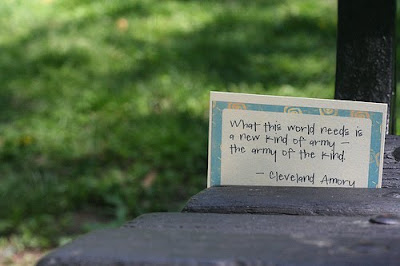 What this world needs is
a new kind of army –
the army of the kind.
– Cleveland Amory